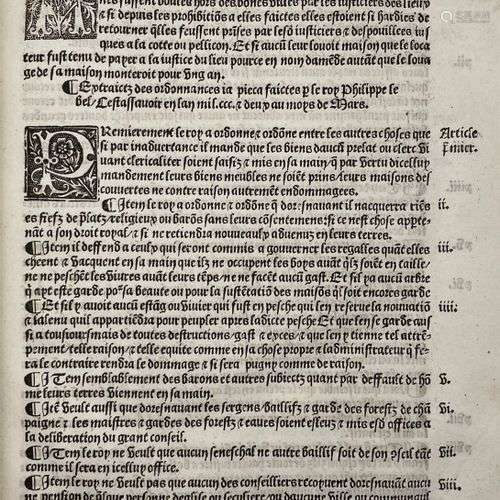 feussent boutes hors des bones villes par les iusticiers des lieux
⁊ si depuis les prohibitiōs a elles faictes elles estoient si hardies de
retourner q̄lles feussent pr̄ses par lesd̄ iusticiers ⁊ despouillees ius
ques a la cotte ou pellicon, Et si aucū leur louoit maison que le loca
teur fust tenu de payer a la iustice du lieu pource en nom damēde autāt que le loua
ge de sa maison monteroit pour vng an.
¶ Extraictz des ordonnances ia pieca faictes par le roy Philippe le
bel, Cestassauoir en lan mil.ccc.⁊ deux au moys de Mars.
PRemierement le roy a ordonne ⁊ ordōne entre les autres choses que
si par inaduertance il mande que les biens daucū prelat ou clerc vi
uant clericaliter soient saisiz ⁊ mis en sa main ꝗ̄ par vertu dicelluy
mandement leurs biens meubles ne soiēt prins leurs maisons des
couuertes ne contre raison autremēt endommagees.
Article
p̄mier.
¶ Item le roy a ordonne ⁊ ordōne q̄ doresnauant il nacquerra riēs
es fiefz de p̄latz religieux ou barōs sans leurs cōsentemens: si ce nest chose apꝑte-
nāt a son droit royal ⁊ si ne retiendra nouueaulx aduenuz en leurs terres.
ii.
¶ Item il deffend a ceulx qui seront commis a gouuerner les regalles quāt elles
cheent ⁊ vacquent en sa main que ilz ne occupent les boys auāt q̄lz soiēt en taille
ne ne peschēt les viures auāt leurs tēps ne ne facēt aucū gast. Et sil ya aucū arbre
q̄ ayt este garde poᷣ sa beaute ou pour la sustētatiō des maisōs q̄l soit encores garde
iii.
¶ Et sil y auoit aucū estāg ou viuier qui fust en pesche qui len reserue la nouuatiō
⁊ lalenu quil appartiēdra pour peupler apres ladicte pesche Et que len se garde aus
si a tousiours mais de toutes destructions, gast ⁊ exces ⁊ que len y tienne tel attrē-
pement, telle raison ⁊ telle equite comme en sa chose propie ⁊ ladministrateur q̄ fe-
ra le contraire rendra le dommage ⁊ si sera pugny comme de raison.
iiii.
¶ ITem semblablement des barons ⁊ autres subiectz quant par deffault de hō
me leurs terres viennent en sa main.
v.
¶ Itē veult aussi que doresnauant les sergens, baillifz ⁊ garde des forestz de chā
paigne ⁊ les maistres ⁊ gardes des forestz ⁊ eaues soient esleuz esd̄ offices a
la deliberation du grant conseil.
vi.
¶ ITem le roy ne veult que aucun seneschal ne autre baillif soit de son p̄seil tāt
comme il sera en icelluy office.
vii.
¶ Item le roy ne veult pas que aucun des conseilliers recoyuent doresnauant au
cune pension de q̄lque personne deglise ou seculiere ou daucune ville ou communau
viii.